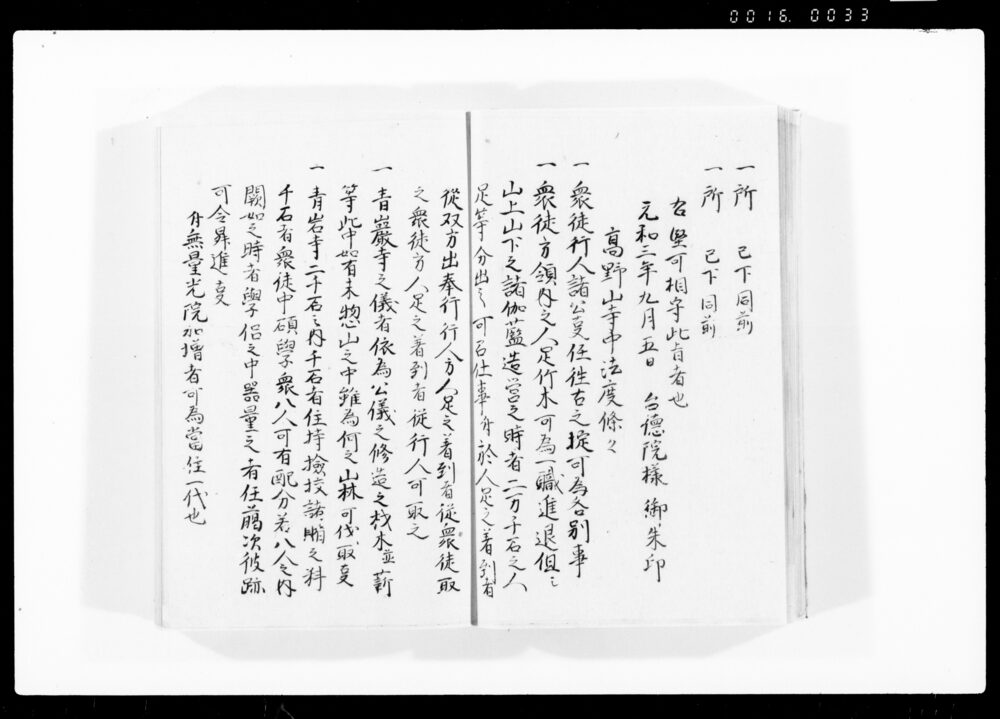 0016. 0033
一所　已下同前
一所　已下同前
右堅可相守此旨者也
元和三年九月五日　台德院様御朱印
高野山寺中法度條々
一　衆徒行人諸公事任往古之掟可為各別事
一　衆徒方領内之人足竹木可為一職進退但シ
山上山下之諸伽藍造営之時者二万千石之人
足等分出之可召仕事付於人足之着到者
從双方出奉行行人方人足之着到者從衆徒取
之衆徒方人足之着到者從行人可取之
一　青巖寺之儀者依為公儀之修造之材木並薪
等此中如有来惣山之中雖為何之山林可伐取事
一　青岩寺二千石之内千石者住持撿挍諸賄之料
千石者衆徒中碩學衆八人可有配分若八人之内
闕如之時者學侶之中器量之者任﨟次彼跡
可令昇進事
付無量光院加増者可為當住一代也